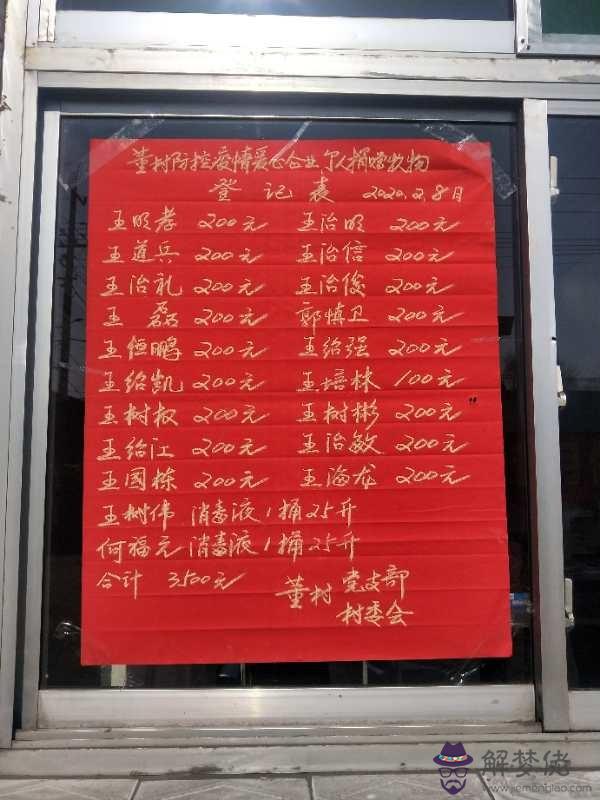 董村防控疫情爱心企业个人捐赠款物
登记表 2020.2.8日
王明孝 200元 王治明 200元
王道兵 200元 王治信 200元
王治礼 200元 王治俊 200元
王磊 200元 郭慎卫 200元
王恒鹏 200元 王绍强 200元
王绍凯 200元 王培林 100元
王树权 200元 王树彬 200元
王绍江 200元 王治敏 200元
王国栋 200元 王海龙 200元
王树伟 消毒液1桶25升
何福元 消毒液1桶25升
合计 3500元
董村 党支部
村委会
解梦佬
www.jiemenglao.com